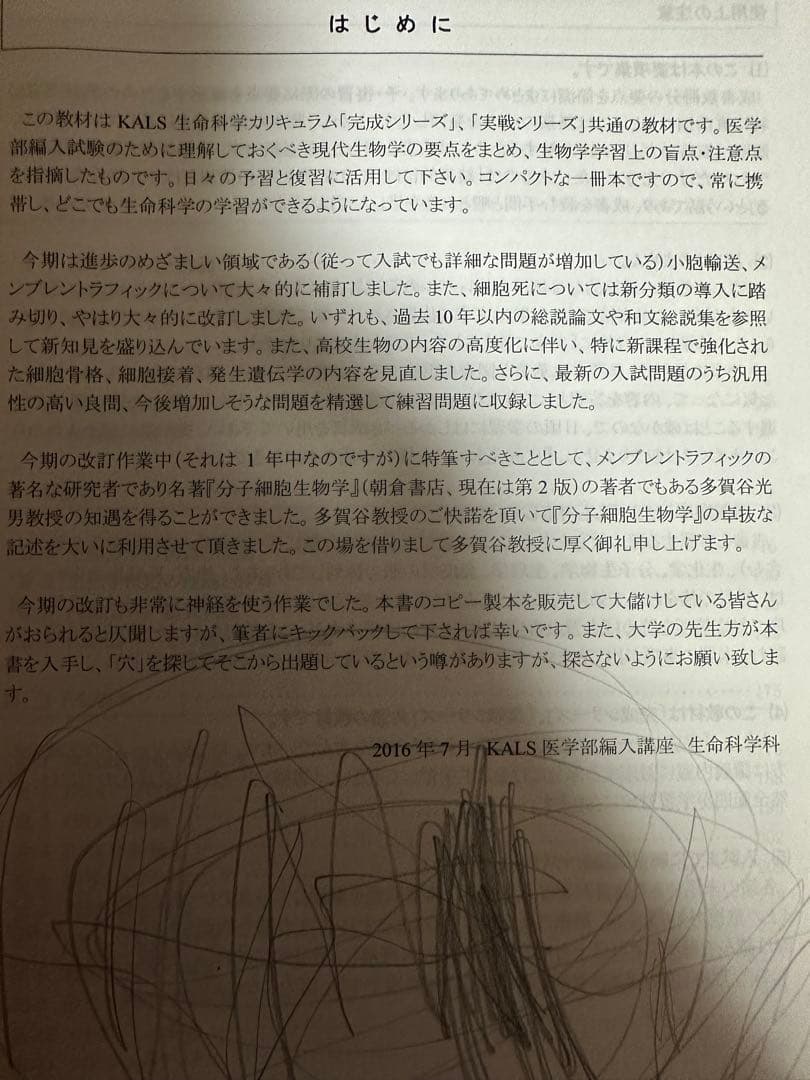 はじめに
この教材は KALS 生命科学カリキュラム「完成シリーズ」、「実戦シリーズ」共通の教材です。医学
部編入試験のために理解しておくべき現代生物学の要点をまとめ、生物学学習上の盲点・注意点
を指摘したものです。日々の予習と復習に活用して下さい。コンパクトな一冊本ですので、常に携
帯し、どこでも生命科学の学習ができるようになっています。
今期は進歩のめざましい領域である(従って入試でも詳細な問題が増加している)小胞輸送、メ
ンブレントラフィックについて大々的に補訂しました。また、細胞死については新分類の導入に踏
み切り、やはり大々的に改訂しました。いずれも、過去 10 年以内の総説論文や和文総説集を参照
して新知見を盛り込んでいます。また、高校生物の内容の高度化に伴い、特に新課程で強化され
た細胞骨格、細胞接着、発生遺伝学の内容を見直しました。さらに、最新の入試問題のうち汎用
性の高い良問、今後増加しそうな問題を精選して練習問題に収録しました。
今期の改訂作業中(それは 1 年中なのですが)に特筆すべきこととして、メンブレントラフィックの
著名な研究者であり名著『分子細胞生物学』(朝倉書店、現在は第 2 版)の著者でもある多賀谷光
男教授の知遇を得ることができました。多賀谷教授のご快諾を頂いて『分子細胞生物学』の卓抜な
記述を大いに利用させて頂きました。この場を借りまして多賀谷教授に厚く御礼申し上げます。
今期の改訂も非常に神経を使う作業でした。本書のコピー製本を販売して大儲けしている皆さん
がおられると仄聞しますが、筆者にキックバックして下されば幸いです。また、大学の先生方が本
書を入手し、「穴」を探してそこから出題しているという噂がありますが、探さないようにお願い致しま
す。
2016 年 7 月 KALS 医学部編入講座 生命科学科